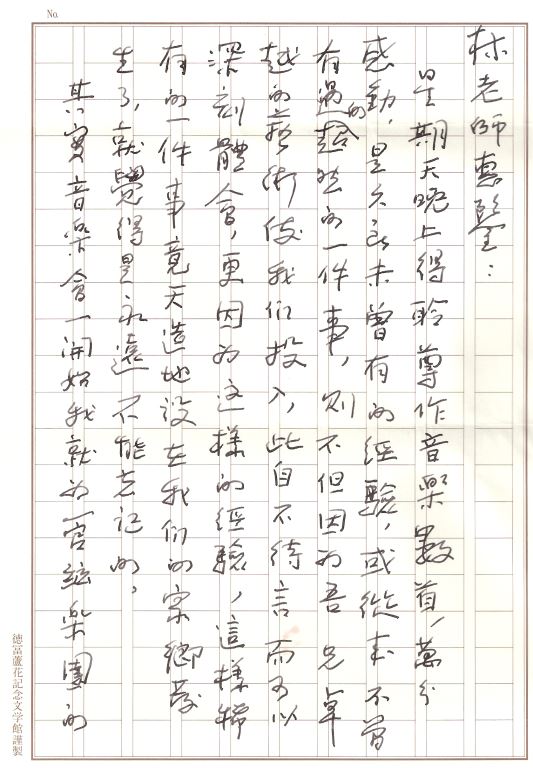 No.
林老師惠鑒：
星期天晚上得聆尊作音樂數首，萬分
感動，是久已未曾有的經驗，或從來不曾
有過的超然的一件事，則不但因為吾兄卓
越的藝術使我們投入，此自不待言而可以
深刻體會，更因为这樣的經驗，這樣稀
有的一件事竟天造地設在我们的家鄉發
生了，就覺得是永遠不能忘记的，
其實音樂會一開始我就为管絃樂團的
徳冨蘆花記念文学館謹製